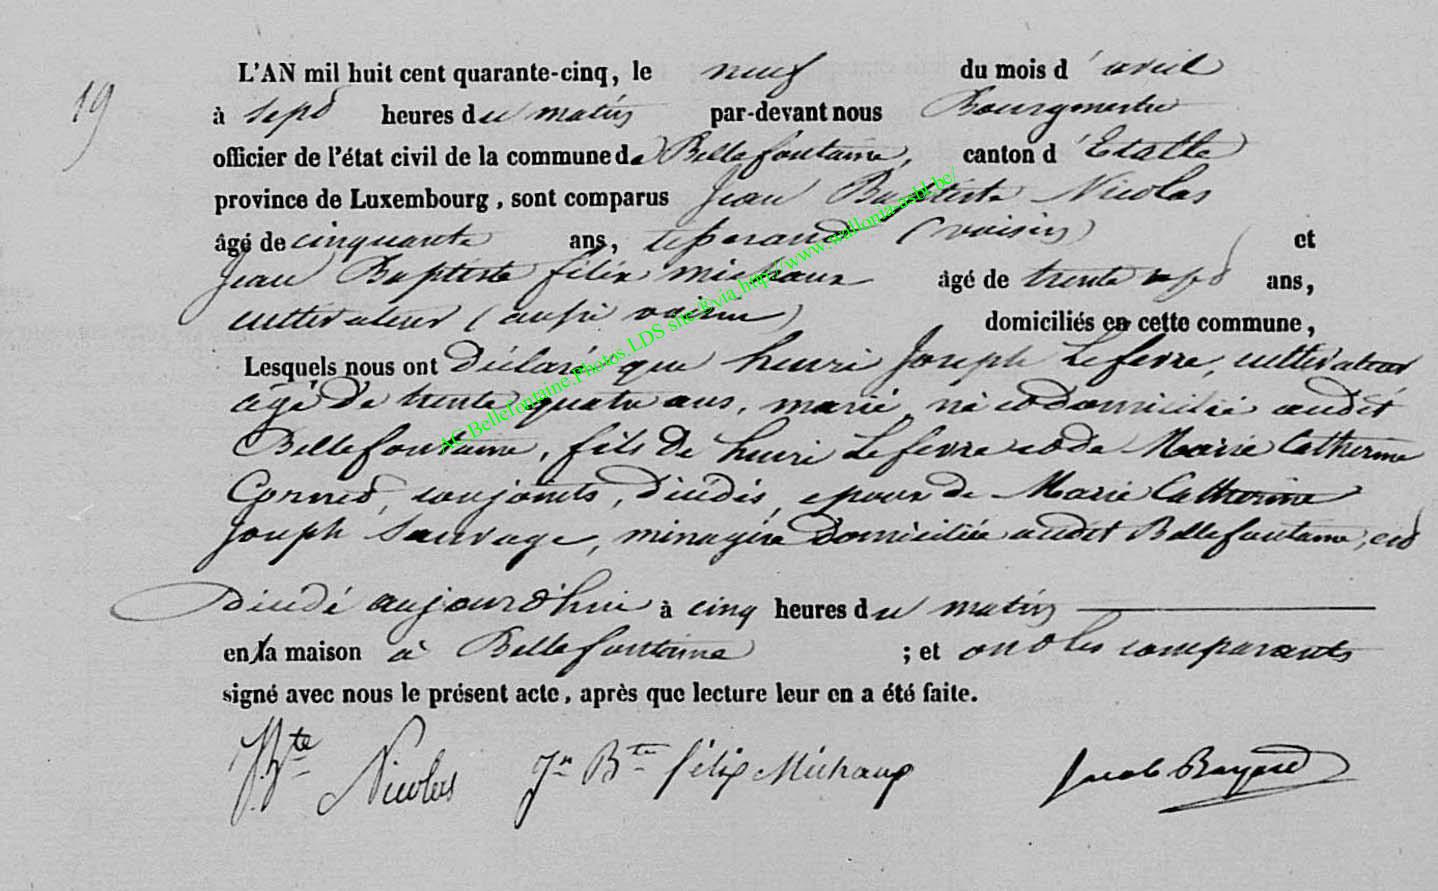 19
L'AN mil huit cent quarante-cinq, le neuf du mois d'avril
à sept heures du matin par-devant nous Bourgmestre
officier de l'état civil de la commune de Bellefontaine, canton d'Etalle
province de Luxembourg, sont comparus Jean Baptiste Nicolas
âgé de cinquante ans, (voisin) et
Jean Baptiste félix michaux âgé de trente sept ans,
cultivateur (aussi voisin) domiciliés en cette commune,
Lesquels nous ont déclaré que henri Joseph Lefevre, cultivateur
agé de trente quatre ans, marié, né et domicilié audit
Bellefontaine, fils de henri Lefevre et de Marie Catherine
conjoints, décédés, epoux de Marie Catherine
Joseph Sauvage, ménagère domiciliée audit Bellefontaine, est
décédé aujourd'hui à cinq heures du matin
en sa maison à Bellefontaine ; et ont les comparants
signé avec nous le présent acte, après que lecture leur en a été faite.
JBte Nicolas Jn Bte félix Michaux Jacob Bayard
AC Bellefontaine.Photos LDS site &via http://www.wallonia-asbl.be/